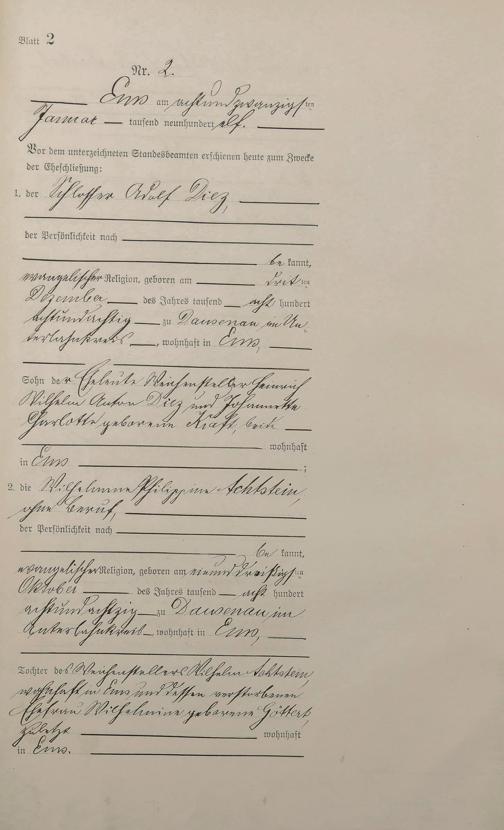 Blatt 2
Nr. 2.
Ems am achtundzwanzigsten
Januar tausend neunhundert elf.
Vor dem unterzeichneten Standesbeamten erschienen heute zum Zwecke
der Eheschließung:
1. der Schlosser Adolf Diez,
der Persönlichkeit nach
be kannt,
evangelischer Religion, geboren am dritten
Dezember des Jahres tausend acht hundert
achtundachtzig zu Dausenau im Un-
terlahnkreis, wohnhaft in Ems,
Sohn der Eheleute Weichensteller Heinrich
Wilhelm Anton Diez und Johannette
Charlotte geborene Kraft, beide
wohnhaft
in Ems ;
2. die Wilhelmine Philippine Achtstein,
ohne Beruf,
der Persönlichkeit nach
be kannt,
evangelischer Religion, geboren am
Oktober des Jahres tausend acht hundert
achtundachtzig zu Dausenau, im
Unterlahnkreis wohnhaft in Ems,
Tochter des Weichenstellers Wilhelm Achtstein,
wohnhaft in Ems und dessen verstorbenen
Ehefrau Wilhelmine geborene
zuletzt wohnhaft
in Ems.